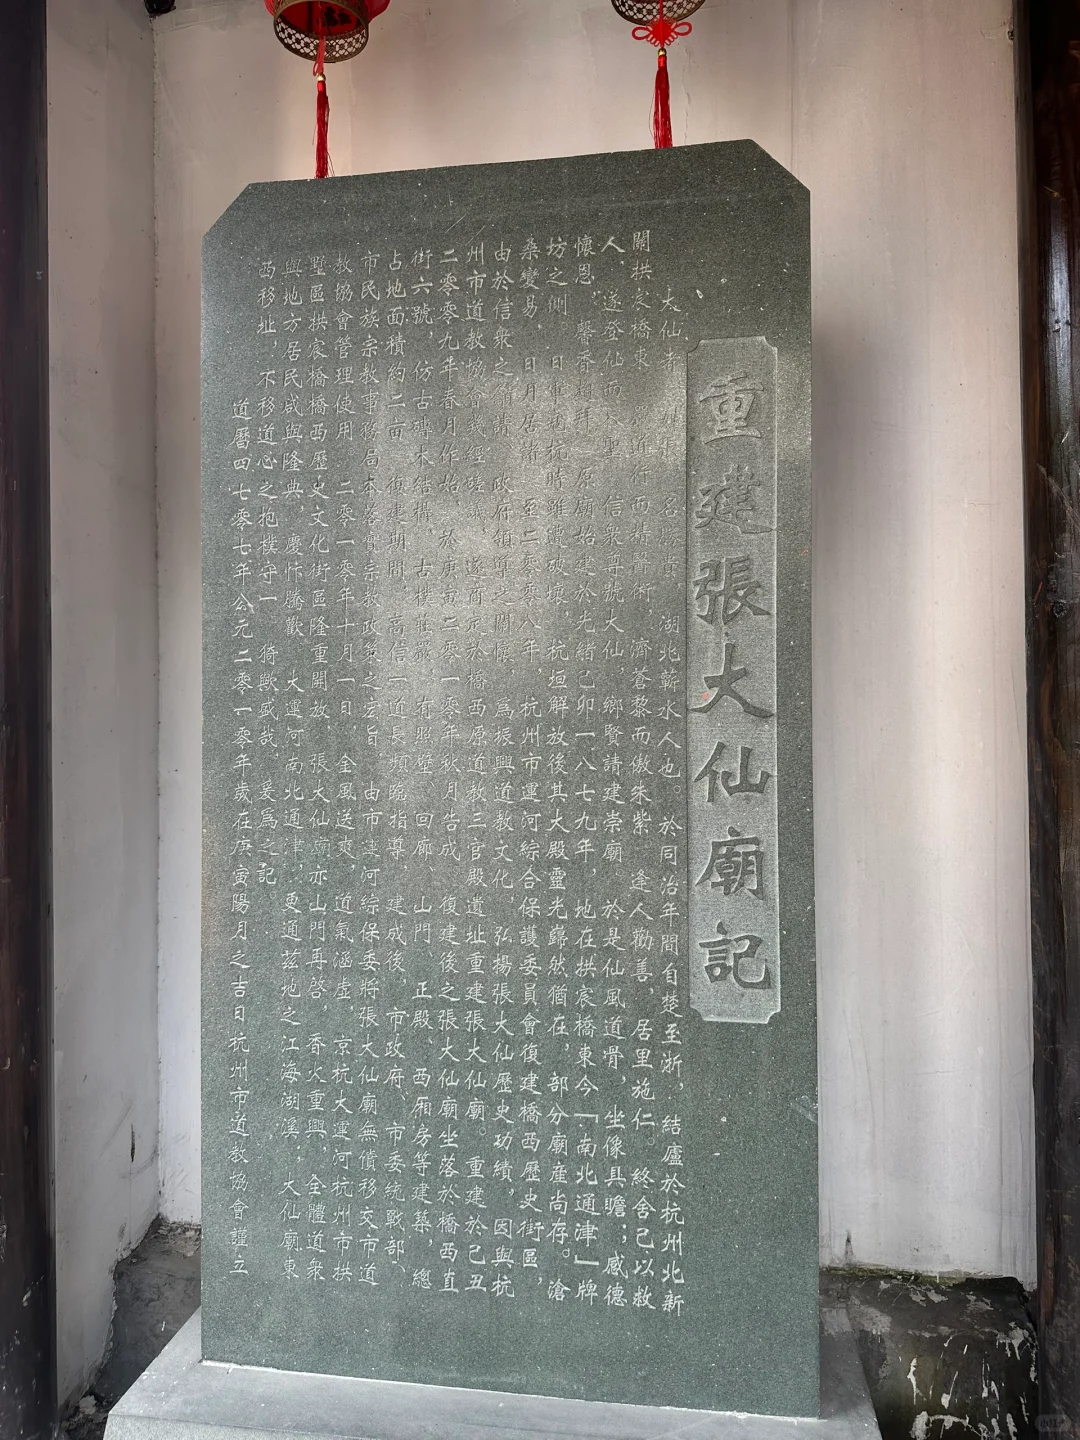 重建張大仙廟記
大仙者 湖北蘄水人也。於同治年間自楚至浙，結廬於杭州北新
關拱宸橋東 道行而擅醫術，濟蒼黎而傲朱紫，逢人勸善，居里施仁。終舍己以救
人，遂登仙而 信衆尊號大仙，鄉賢請建崇廟，於是仙風道骨，坐像具瞻；感德
懷恩，馨香 拜 原廟始建於光緒己卯一八七九年，地在拱宸橋東今「南北通津」牌
坊之側。日軍 杭時雖遭破壞，杭垣解放後其大殿靈光巋然猶在，部分廟産尚存。滄
桑變易，日月居諸，至二零零八年，杭州市運河綜合保護委員會復建橋西歷史街區，
由於信衆之 請，政府領導之關懷，爲振興道教文化，弘揚張大仙歷史功績，因與杭
州市道教協會幾經磋議，遂酌定於橋西原道教三官殿遺址重建張大仙廟。重建於己丑
二零零九年春月作始，於庚寅二零一零年秋月告成，復建後之張大仙廟坐落於橋西直
街六號，仿古磚木結構，古樸莊嚴，有照壁、回廊、山門、正殿、西厢房等建築，總
占地面積約二亩，復建期間，高信一道長頻臨指導，建成後，市政府、市委統戰部、
市民族宗教事務局本落實宗教政策之宏旨，由市運河綜保委將張大仙廟無償移交市道
教協會管理使用，二零一零年十月一日，金風送爽，道氣涵虛，京杭大運河杭州市拱
墅區拱宸橋橋西歷史文化街區隆重開放，張大仙廟亦山門再啓，香火重興，全體道衆
與地方居民咸與隆典，慶忭騰歡，大運河南北通津，更通茲地之江海湖溪；大仙廟東
西移址，不移道心之抱樸守一，猗歟盛哉，爰爲之記
道曆四七零七年公元二零一零年歲在庚寅陽月之吉日杭州市道教協會謹立